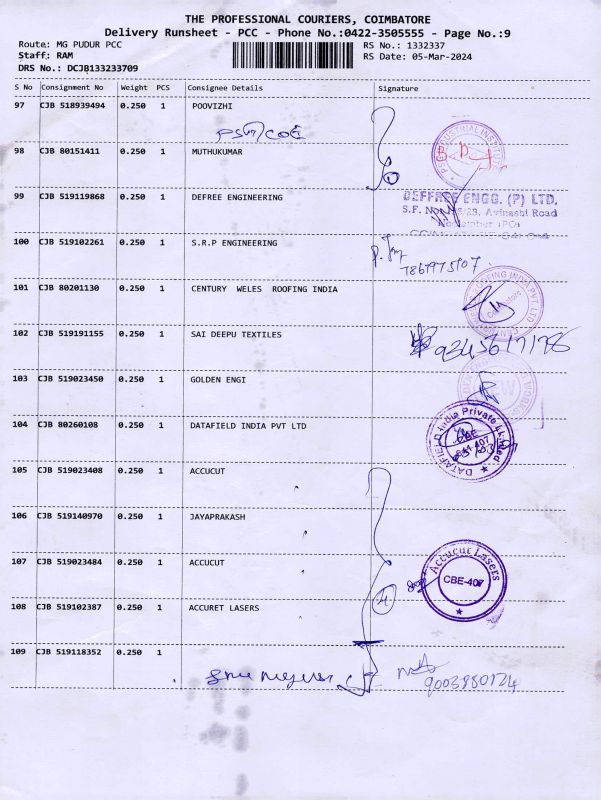 THE PROFESSIONAL COURIERS, COIMBATORE
Delivery Runsheet - PCC - Phone No.:0422-3505555 - Page No.:9
Route: MG PUDUR PCC RS No.: 1332337
Staff: RAM RS Date: 05-Mar-2024
DRS No.: DCJB133233709
S No Consignment No Weight PCS Consignee Details Signature
97 CJB 518939494 0.250 1 POOVIZHI
98 CJB 80151411 0.250 1 MUTHUKUMAR
99 CJB 519119868 0.250 1 DEFREE ENGINEERING
DEFFREE ENGG. (P) LTD.
Avinashi Road
100 CJB 519102261 0.250 1 S.R.P ENGINEERING
101 CJB 80201130 0.250 1 CENTURY WELES ROOFING INDIA
102 CJB 519191155 0.250 1 SAI DEEPU TEXTILES
103 CJB 519023450 0.250 1 GOLDEN ENGI
104 CJB 80260108 0.250 1 DATAFIELD INDIA PVT LTD
DATAFIELD India Private Limited
105 CJB 519023408 0.250 1 ACCUCUT
106 CJB 519140970 0.250 1 JAYAPRAKASH
107 CJB 519023484 0.250 1 ACCUCUT
Accucut Lasers
CBE-407
108 CJB 519102387 0.250 1 ACCURET LASERS
109 CJB 519118352 0.250 1
9003880124